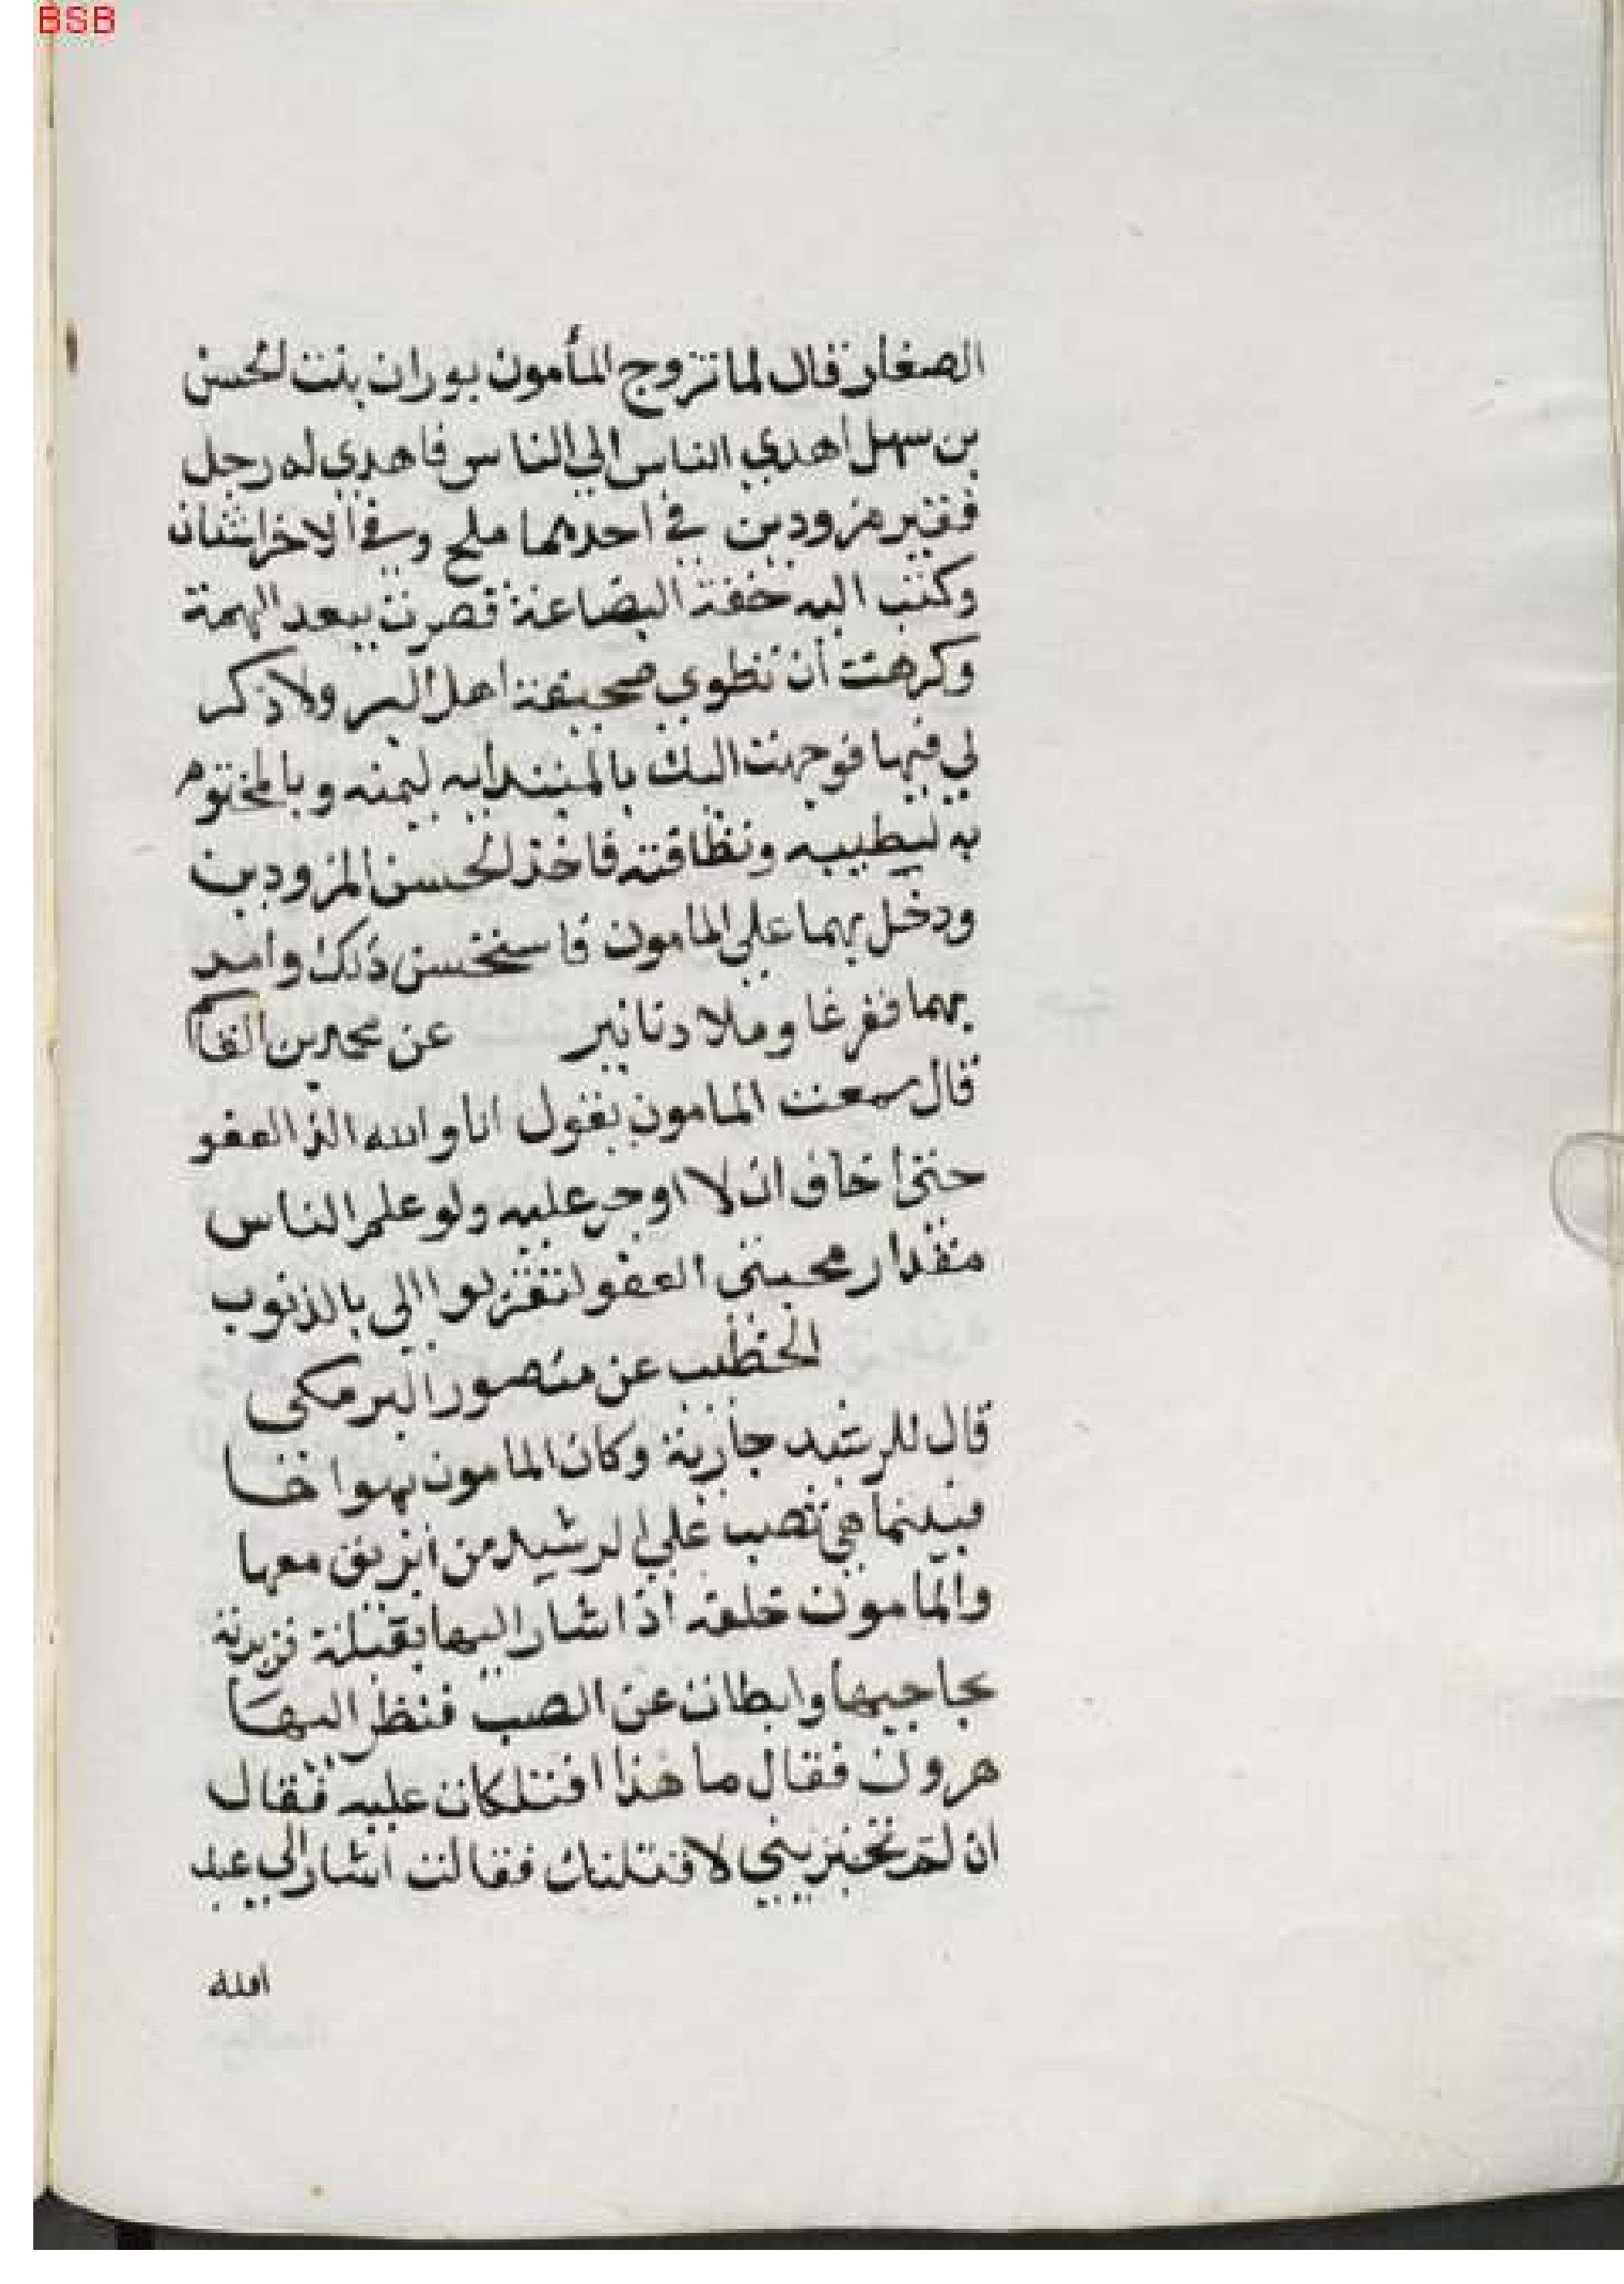 BSB
الصغار قال لما تزوج المأمون بوران بنت الحسن
بن سهل اهدي الناس الي الناس فاهدي له رجل
فقير مزودين في احدهما ملح وفي الاخر اشنان
وكتب اليه خفة البضاعة قصرت ببعد الهمة
وكرهت أن تطوي صحيفة اهل البر ولا ذكر
لي فيها فوجهت اليك بالمبتدابه ليمنه وبالمختوم
به لطيبه ونظافته فاخذ الحسن المزودين
ودخل بهما علي المامون فاستحسن ذلك وامر
بهما ففرغا وملا دنانير عن محمد بن القا
قال سمعت المامون يقول انا والله الذ العفو
حتي أخاف ان لا اوجر عليه ولو علم الناس
مقدار محبتي العفو لتقربوا الي بالذنوب
الخطيب عن منصور البرمكي
قال للرشيد جارية وكان المامون يهواها
فبينما هي تصب علي الرشيد من ابريق معها
والمامون خلفه اذ اشار اليها بقبلة
بحاجبها وابطات عن الصب فنظر اليها
هرون فقال ما هذا عليه فقال
ان لم تخبريني لاقتلنك فقالت اشار الي عبد
الله